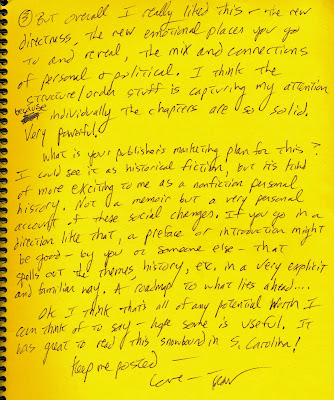 ③ But overall I really liked this - the new
directness, the new emotional places you go
to and reveal, the mix and connections
of personal & political. I think the
structure/order stuff is capturing my attention
because individually the chapters are so solid.
Very powerful.
What is your publisher's marketing plan for this?
I could see it as historical fiction, but it's kind
of more exciting to me as a nonfiction personal
history. Not a memoir but a very personal
account of these social changes. If you go in a
direction like that, a preface or introduction might
be good - by you or someone else - that
spells out the themes, history, etc. in a very explicit
and familiar way. A roadmap to what lies ahead....
OK I think that's all of any potential worth I
can think of to say - hope some is useful. It
was great to read this snowbound in S. Carolina!
Keep me posted -
Love -